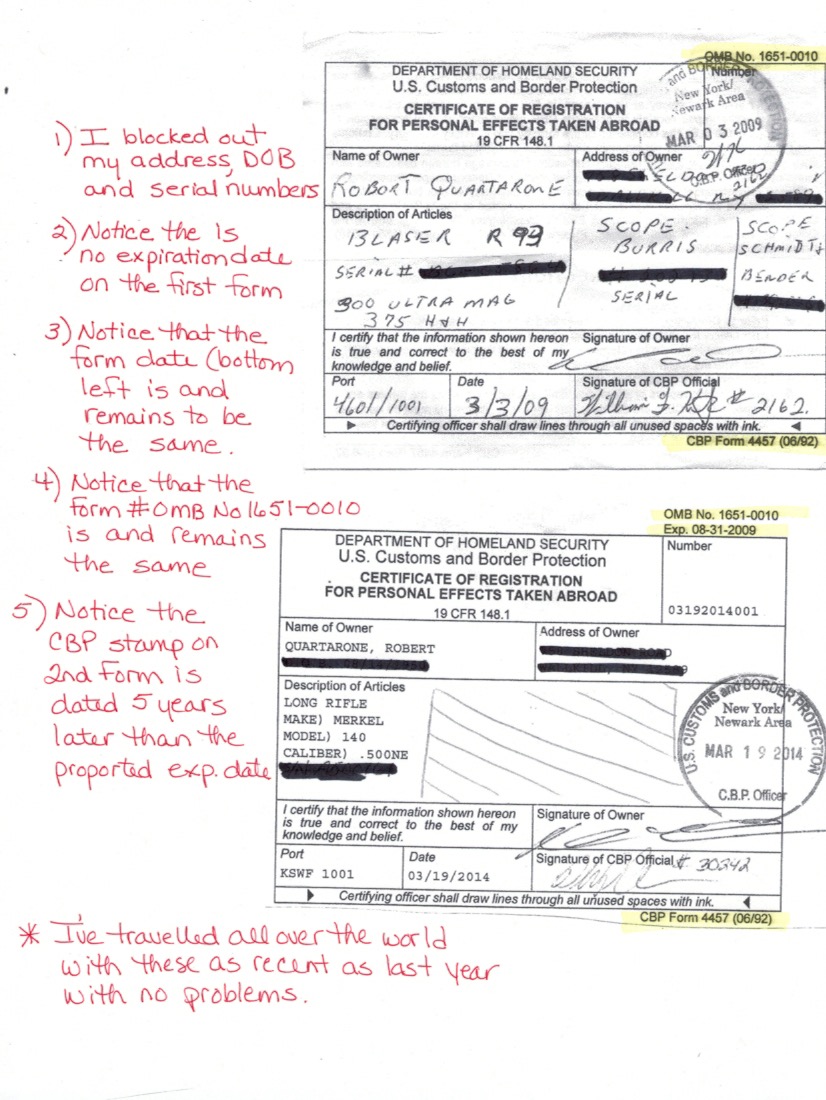 1) I blocked out
my address, DOB
and serial numbers
2) Notice the is
no expiration date
on the first form
3) Notice that the
form date (bottom
left is and
remains to be
the same.
4) Notice that the
form # OMB No 1651-0010
is and remains
the same
5) Notice the
CBP stamp on
2nd Form is
dated 5 years
later than the
proported exp. date
* I've travelled all over the world
with these as recent as last year
with no problems.
OMB No. 1651-0010
DEPARTMENT OF HOMELAND SECURITY
U.S. Customs and Border Protection
CERTIFICATE OF REGISTRATION
FOR PERSONAL EFFECTS TAKEN ABROAD
19 CFR 148.1
Number
and BORDER PROTECTION
New York/
Newark Area
MAR 03 2009
C.B.P. Officer
2162
Name of Owner
ROBORT QUARTARONE
Address of Owner
Description of Articles
BLASER R 93
SERIAL #
300 ULTRA MAG
375 H&H
SCOPE
BURRIS
SERIAL
SCOPE
SCHMIDT &
BENDER
I certify that the information shown hereon
is true and correct to the best of my
knowledge and belief.
Signature of Owner
Port
4601/1001
Date
3/3/09
Signature of CBP Official
# 2162
Certifying officer shall draw lines through all unused spaces with ink.
CBP Form 4457 (06/92)
OMB No. 1651-0010
Exp. 08-31-2009
DEPARTMENT OF HOMELAND SECURITY
U.S. Customs and Border Protection
CERTIFICATE OF REGISTRATION
FOR PERSONAL EFFECTS TAKEN ABROAD
19 CFR 148.1
Number
03192014001
Name of Owner
QUARTARONE, ROBERT
Address of Owner
Description of Articles
LONG RIFLE
MAKE) MERKEL
MODEL) 140
CALIBER) .500NE
U.S. CUSTOMS and BORDER PROTECTION
New York/
Newark Area
MAR 19 2014
C.B.P. Officer
I certify that the information shown hereon
is true and correct to the best of my
knowledge and belief.
Signature of Owner
Port
KSWF 1001
Date
03/19/2014
Signature of CBP Official # 30242
Certifying officer shall draw lines through all unused spaces with ink.
CBP Form 4457 (06/92)